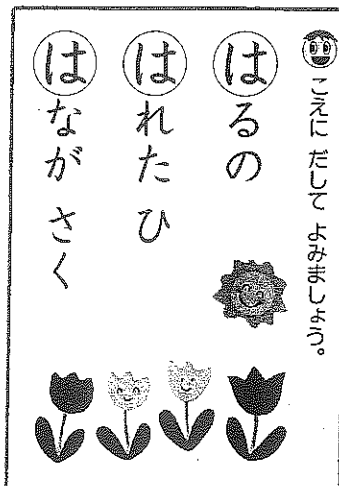 こえに だして よみましょう。
はるの
はれた ひ
はながさく